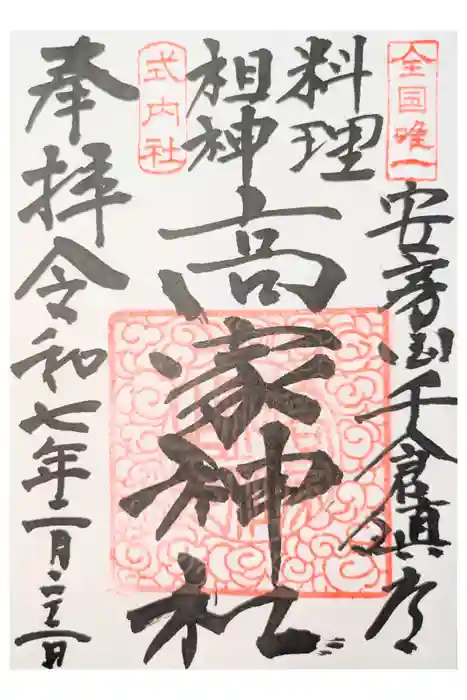 全国唯一
安房国千倉鎮座
料理
祖神
高家神社
式内社
奉拝 令和七年二月二十三日